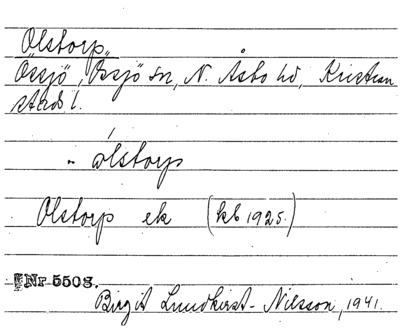 "Olstorp"
Össjö, Össjö sn, N. Åsbo hd, Kristian
stads l.
" ólstorp
Olstorp ek (kb 1925.)
Nr 5508.
Birgit Lundkvist-Nilsson, 1941.